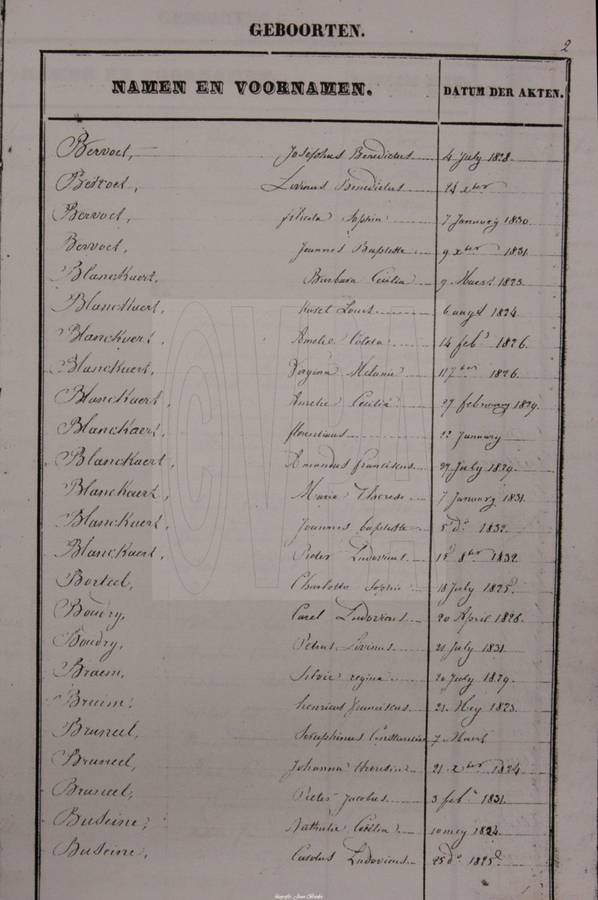 2
GEBOORTEN.
NAMEN EN VOORNAMEN. DATUM DER AKTEN.
Bervoet, Josephus Benedictus 4 July 1828
Bervoet, Livinus Benedictus 24 xber
Bervoet, felicita Sophia 7 January 1830
Bervoet, Joannes Baptista 9 xber 1831
Blanckaert, Barbara Cecilia 9 Maert 1823
Blanckaert, Louis 6 augt 1824
Blanckaert, Amelie 14 feb. 1826
Blanckaert, Virginia Melanie 11 7ber 1826
Blanckaert, Amelie Cecilia 27 february 1829
Blanckaert, florentinus 22 January
Blanckaert, Amandus franciscus 27 July 1829
Blanckaert, Marie Therese 7 January 1831
Blanckaert, Joannes baptiste 5 do 1832
Blanckaert, Pieter Ludovicus 15 8ber 1832
Charlotte Sophie 18 July 1825
Boudry, Carel Ludovicus 20 April 1828
Boudry, Petrus Livinus 21 July 1831
Braem, Silvie regina 20 July 1829
Bruim, henricus franciscus 21 Mey 1823
Bruneel, Seraphinus Constantin 7 Maert
Bruneel, Johanna 21 xber 1824
Bruneel, Pieter Jacobus 3 feb. 1831
Buseine, Nathalie Cecilia 10 mey 1824
Buseine, Carolus Ludovicus 25 do 1825